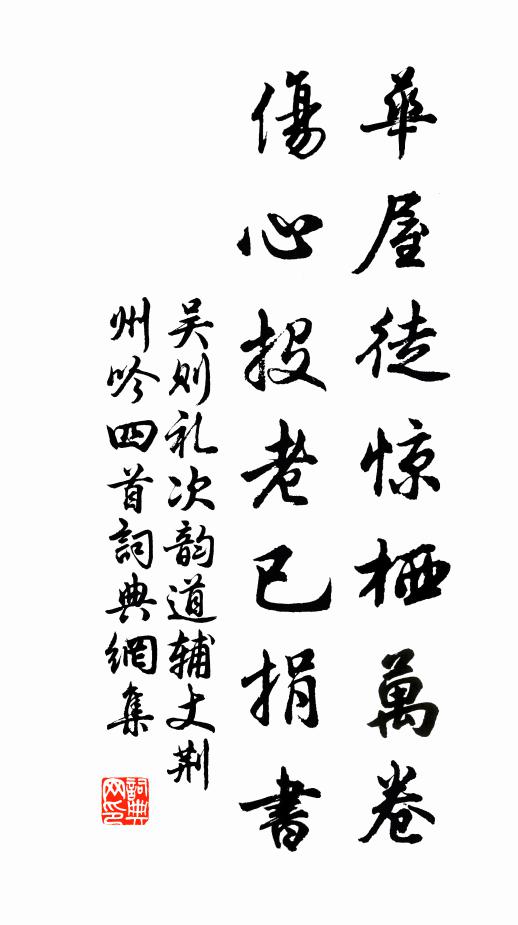 華屋徒惊栖萬卷
傷心投老已捐書
吴则礼次韵道辅丈荆
州吟四首詞典網集
詞典
网印